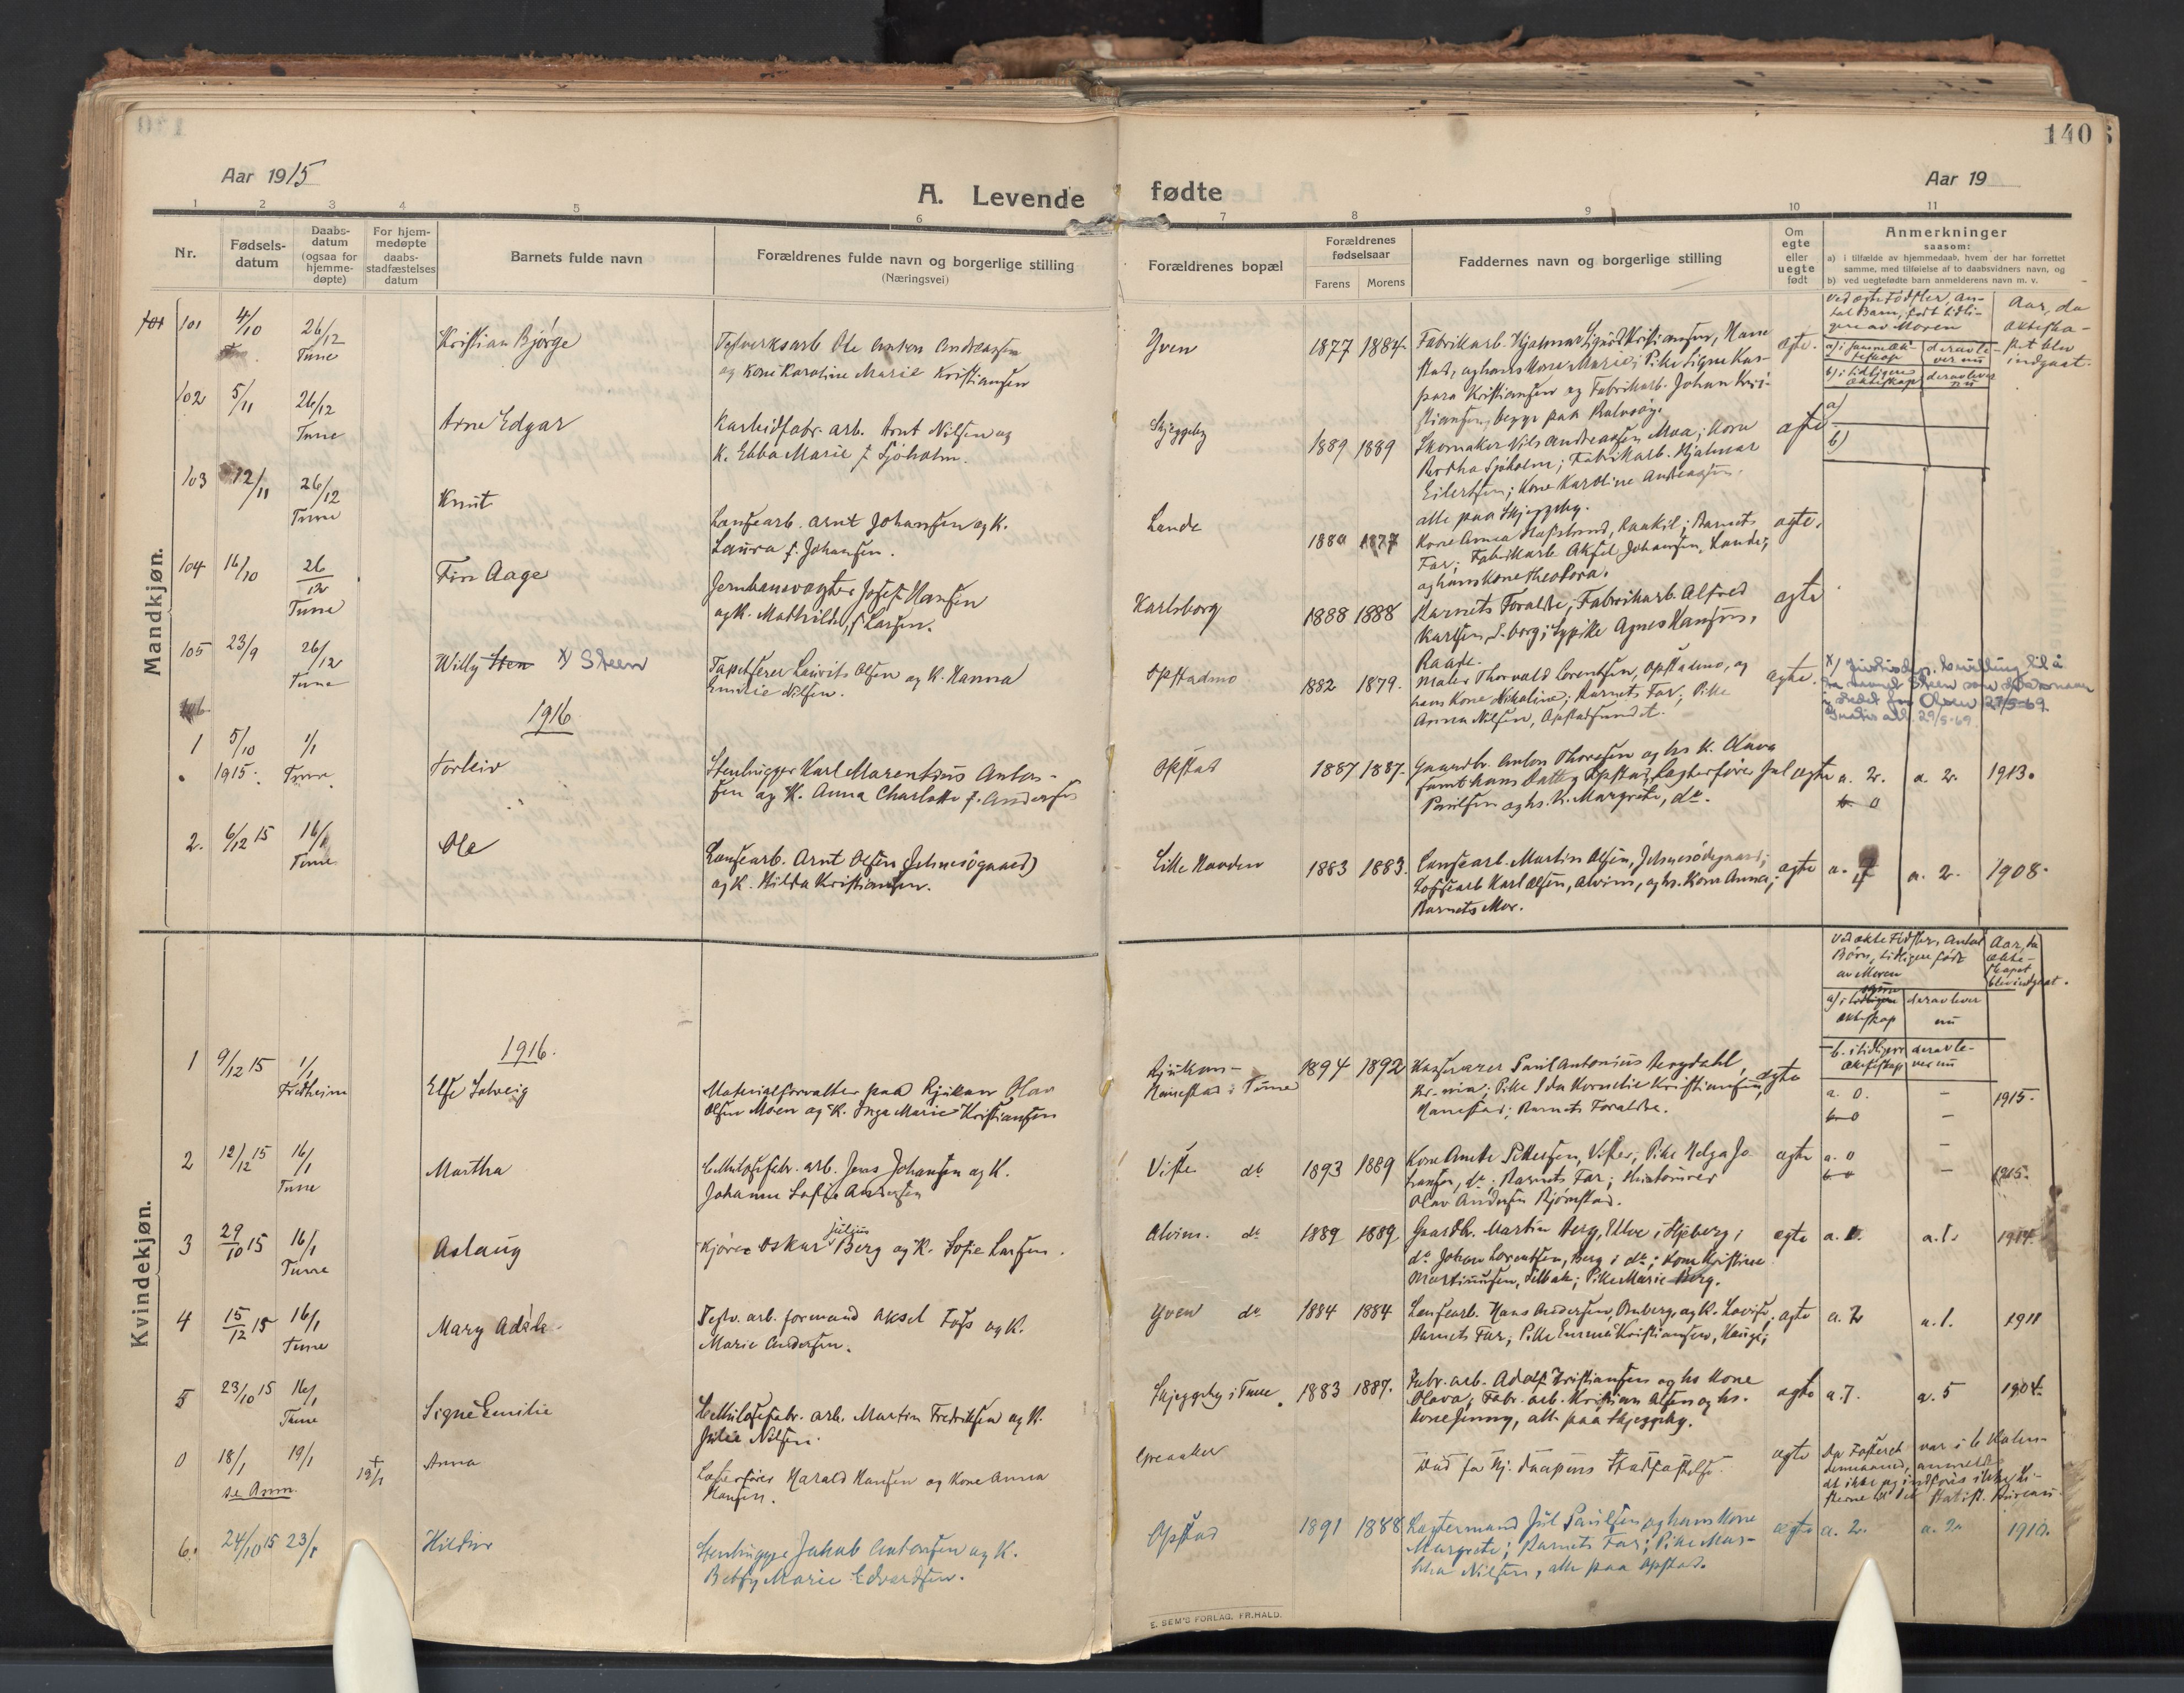 140
Aar 1915
A. Levende fødte
Aar 19
1 2 3 4 5 6 7 8 9 10 11
Nr.
Fødsels-
datum
Daabs-
datum
(ogsaa for
hjemme-
døpte)
For hjem-
medøpte
daabs-
stadfæstelses
datum
Barnets fulde navn
Forældrenes fulde navn og borgerlige stilling
(Næringsvei)
Forældrenes bopæl
Forældrenes
fødselsaar
Farens Morens
Faddernes navn og borgerlige stilling
Om
egte
eller
uegte
født
Anmerkninger
saasom:
a) i tilfælde av hjemmedaab, hvem der har forrettet
samme, med tilføielse af to daabsvidners navn, og
b) ved uegtefødte barn anmelderens navn m. v.
Ved ægte Fødsler, An-
tal Barn, født tidli-
gere av Moren
Aar, da
ækteska-
pet blev
indgaat.
Mandkjøn.
101 4/10 26/12 Tune
Kristian Bjørge
Teglverksarb Ole Anton Andreassen
og Kone Karoline Marie Kristiansen
Yven 1877 1884
Fabrikarb. Hjalmar Sigurd Kristiansen, Hane
stad, og hans Kone Marie; Pike Signe Kas-
para Kristiansen og Fabrikarb. Johan Kri-
stiansen, begge paa Kalvsøy.
ægte.
102 5/11 26/12 Tune
Arne Edgar
Karbidfabr. arb. Arnt Nilsen og
K. Ebba Marie f. Sjöholm.
Skjeggeby 1889 1889
Skomaker Nils Andreassen Moa; Kone
Bertha Sjøholm; Fabrikarb. Hjalmar
Eilertsen; Kone Karoline Andreassen,
alle paa Skjeggeby.
ægte
a)
b)
103 12/11 26/12 Tune
Knut
Lænsearb. Arnt Johansen og K.
Laura f. Johansen.
Lande 1880 1877
Kone Anna Hafslund, Raakil; Barnets
Far; Fabrikarb Aksel Johansen, Lande;
og hans Kone Theodora.
ægte.
104 16/10 26/12 Tune
Fin Aage
Jernbanevogter Josef Hansen
og K. Mathilde f. Larsen.
Karlsborg 1888 1888
Barnets Forældre; Fabrikarb. Alfred
Karlsen, S-borg; Sypike Agnes Hansen,
Raade.
ægte
105 23/9 26/12 Tune
Willy Sten x) Steen
Tapetserer Laurits Olsen og K. Hanna
Emilie Nilsen.
Opstadmo 1882 1879.
Maler Thorvald Lorentsen, Opstadmo, og
hans Kone Nikoline; Barnets Far; Pike
Anna Nilsen, Opstadsundet.
ægte.
x) Justisdep. bevilling til å
ta navnet Steen som slektsnavn
i stedet for Olsen 27/5-69.
29/5-69
1916
1 5/10 1915. 1/1 Tune
Torleiv
Stenhugger Karl Marentius Anton-
sen og K. Anna Charlotte f. Andersen
Opstad 1887 1887.
Gaardbr. Anton Thoresen og hs K. Olava
samt hans Datt. Opstad, Lægterfører Jul
Paulsen og hs. K. Margrete, do.
ægte a. 2. a. 2. 1913.
b. 0
2. 6/12 15 16/1 Tune
Ole
Lænsearb. Arnt Olsen (Jelsnesøgaard)
og K. Hilda Kristiansen.
Lille Navden 1883 1883.
Lænsearb. Martin Olsen, Jelsnesødegaard;
Lossearb Karl Olsen, Alvim, og hs. Kone Anna;
Barnets Mor.
ægte a. 4 a. 2. 1908.
Kvindekjøn.
Ved ækte Fødsler, Antal
Børn, tidligere født
av Moren
Aar, da
ækte-
skapet
blev indgaat.
1916.
1 9/12 15 1/1 Fredheim
Else Solveig
Materialforvalter paa Rjukan Olav
Olsen Moen og K. Inga Marie Kristiansen
Rjukan-
Hanestad i Tune 1894 1892
Kasserer Paul Antonius Bergdahl,
Kr-nia; Pike Ida Kornelie Kristiansen,
Hanestad; Barnets Foraldre.
ægte a. 0. - 1915.
b. 0 -
2 12/12 15 16/1 Tune
Martha
Cellulosefabr. arb. Jens Johansen og K.
Johanne Sofie Andersen
Viste do 1893 1889
Kone Anette Pettersen, Viste; Pike Helga Jo
hansen, do; Barnets Far;
Olav Andersen Bjørnstad.
ægte a. 0 - 1915.
b. 0 -
3 29/10 15 16/1 Tune
Aslaug
Kjører Oskar Julius Berg og K. Sofie Larsen.
Alvim. do 1889 1889
Gaardbr. Martin Berg, i Skjeberg;
do Johan Lorentsen, Berg i do; Kone Kristine
Martinusen, Silbak; Pike Marie Berg.
ægte a. 1. a. 1. 1914.
4 15/12 15 16/1 Tune
Mary Adéle
Teglv. arb. formand Aksel Foss og K.
Marie Andersen.
Yven do 1884 1884
Lænsearb. Hans Andersen, Bnberg, og K. Lovise,
Barnets Far; Pike Emma Kristiansen, Hauge;
ægte a. 2 a. 1. 1911
5 23/10 15 16/1 Tune
Signe Emilie
Cellulosefabr. arb. Martin Fredriksen og K.
Julie Nilsen.
Skjeggeby i Tune 1883 1887.
Fabr. arb. Adolf Kristiansen og hs Kone
Olava; Fabr. arb. Kristian Olsen og hs.
Kone Jenny, alle paa Skjeggeby.
ægte a. 7. a. 5 1904.
0 18/1 19/1 † 19/1
se Anm.
Anna
Lægterfører Harald Hansen og Kone Anna
Hansen.
Greaaker
Død før Hj. daapens Stadfæstelse.
ægte
Da Fosteret var i 6 Kalen-
dermaaned, anmeldes
det ikke og indføres ikke i Li-
sterne til Det statist. Bureau.
6. 24/10 15 23/1
Hildur
Stenhugger Jakob Antonsen og K.
Betsy Marie Edvardsen.
Opstad 1891 1888
Lagtermand Jul Paulsen og hans Kone
Margrete; Barnets Far; Pike Mar-
tha Nilsen, alle paa Opstad.
ægte a. 2. a. 2. 1910.
E. SEM'S FORLAG, FR.HALD.